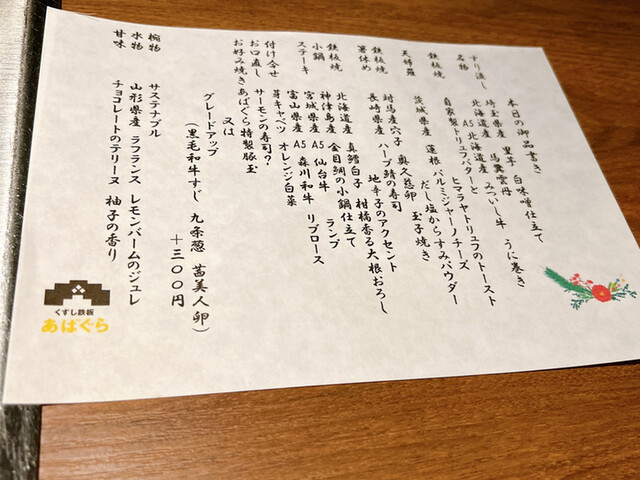 本日の御品書き
すり流し 埼玉県産 里芋 白味噌仕立て
名物 北海道産 馬糞雲丹 うに巻き
北海道産 A5 みついし牛
鉄板焼 自家製トリュフバターと ヒマラヤトリュフのトースト
天婦羅 茨城県産 蓮根 パルミジャーノチーズ だし塩からすみパウダー
奥久慈卵 玉子焼き
鉄板焼 対馬産穴子 ハーブ鯖の寿司
箸休め 長崎県産 地辛子のアクセント
鉄板焼 北海道産 真鱈白子 柑橘香る大根おろし
小鍋 神津島産 金目鯛の小鍋仕立て
ステーキ 宮城県産 A5 仙台牛 ランプ
富山県産 A5 森川和牛 リブロース
付け合せ 芽キャベツ オレンジ白菜
お口直し サーモンの寿司?
お好み焼き あばぐら特製豚玉
又は
グレードアップ
(黒毛和牛すじ 九条葱 茜美人卵)
+三〇〇円
椀物 サステナブル
水物 山形県産 ラフランス レモンバームのジュレ
甘味 チョコレートのテリーヌ 柚子の香り
くずし鉄板
あばぐら